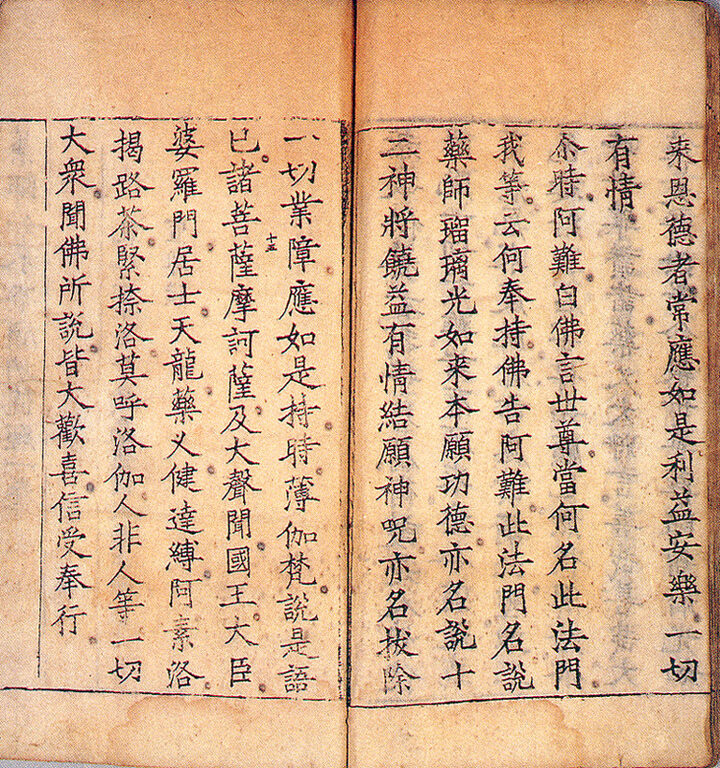 来恩德者常應如是利益安樂一切
有情
尒時阿難白佛言世尊當何名此法門
我等云何奉持佛告阿難此法門名說
藥師瑠璃光如來本願功德亦名說十
二神將饒益有情結願神呪亦名拔除
一切業障應如是持時薄伽梵說是語
已諸菩薩摩訶薩及大聲聞國王大臣
十五
婆羅門居士天龍藥义健達縛阿素洛
揭路茶緊捺洛莫呼洛伽人非人等一切
大衆聞佛所說皆大歡喜信受奉行